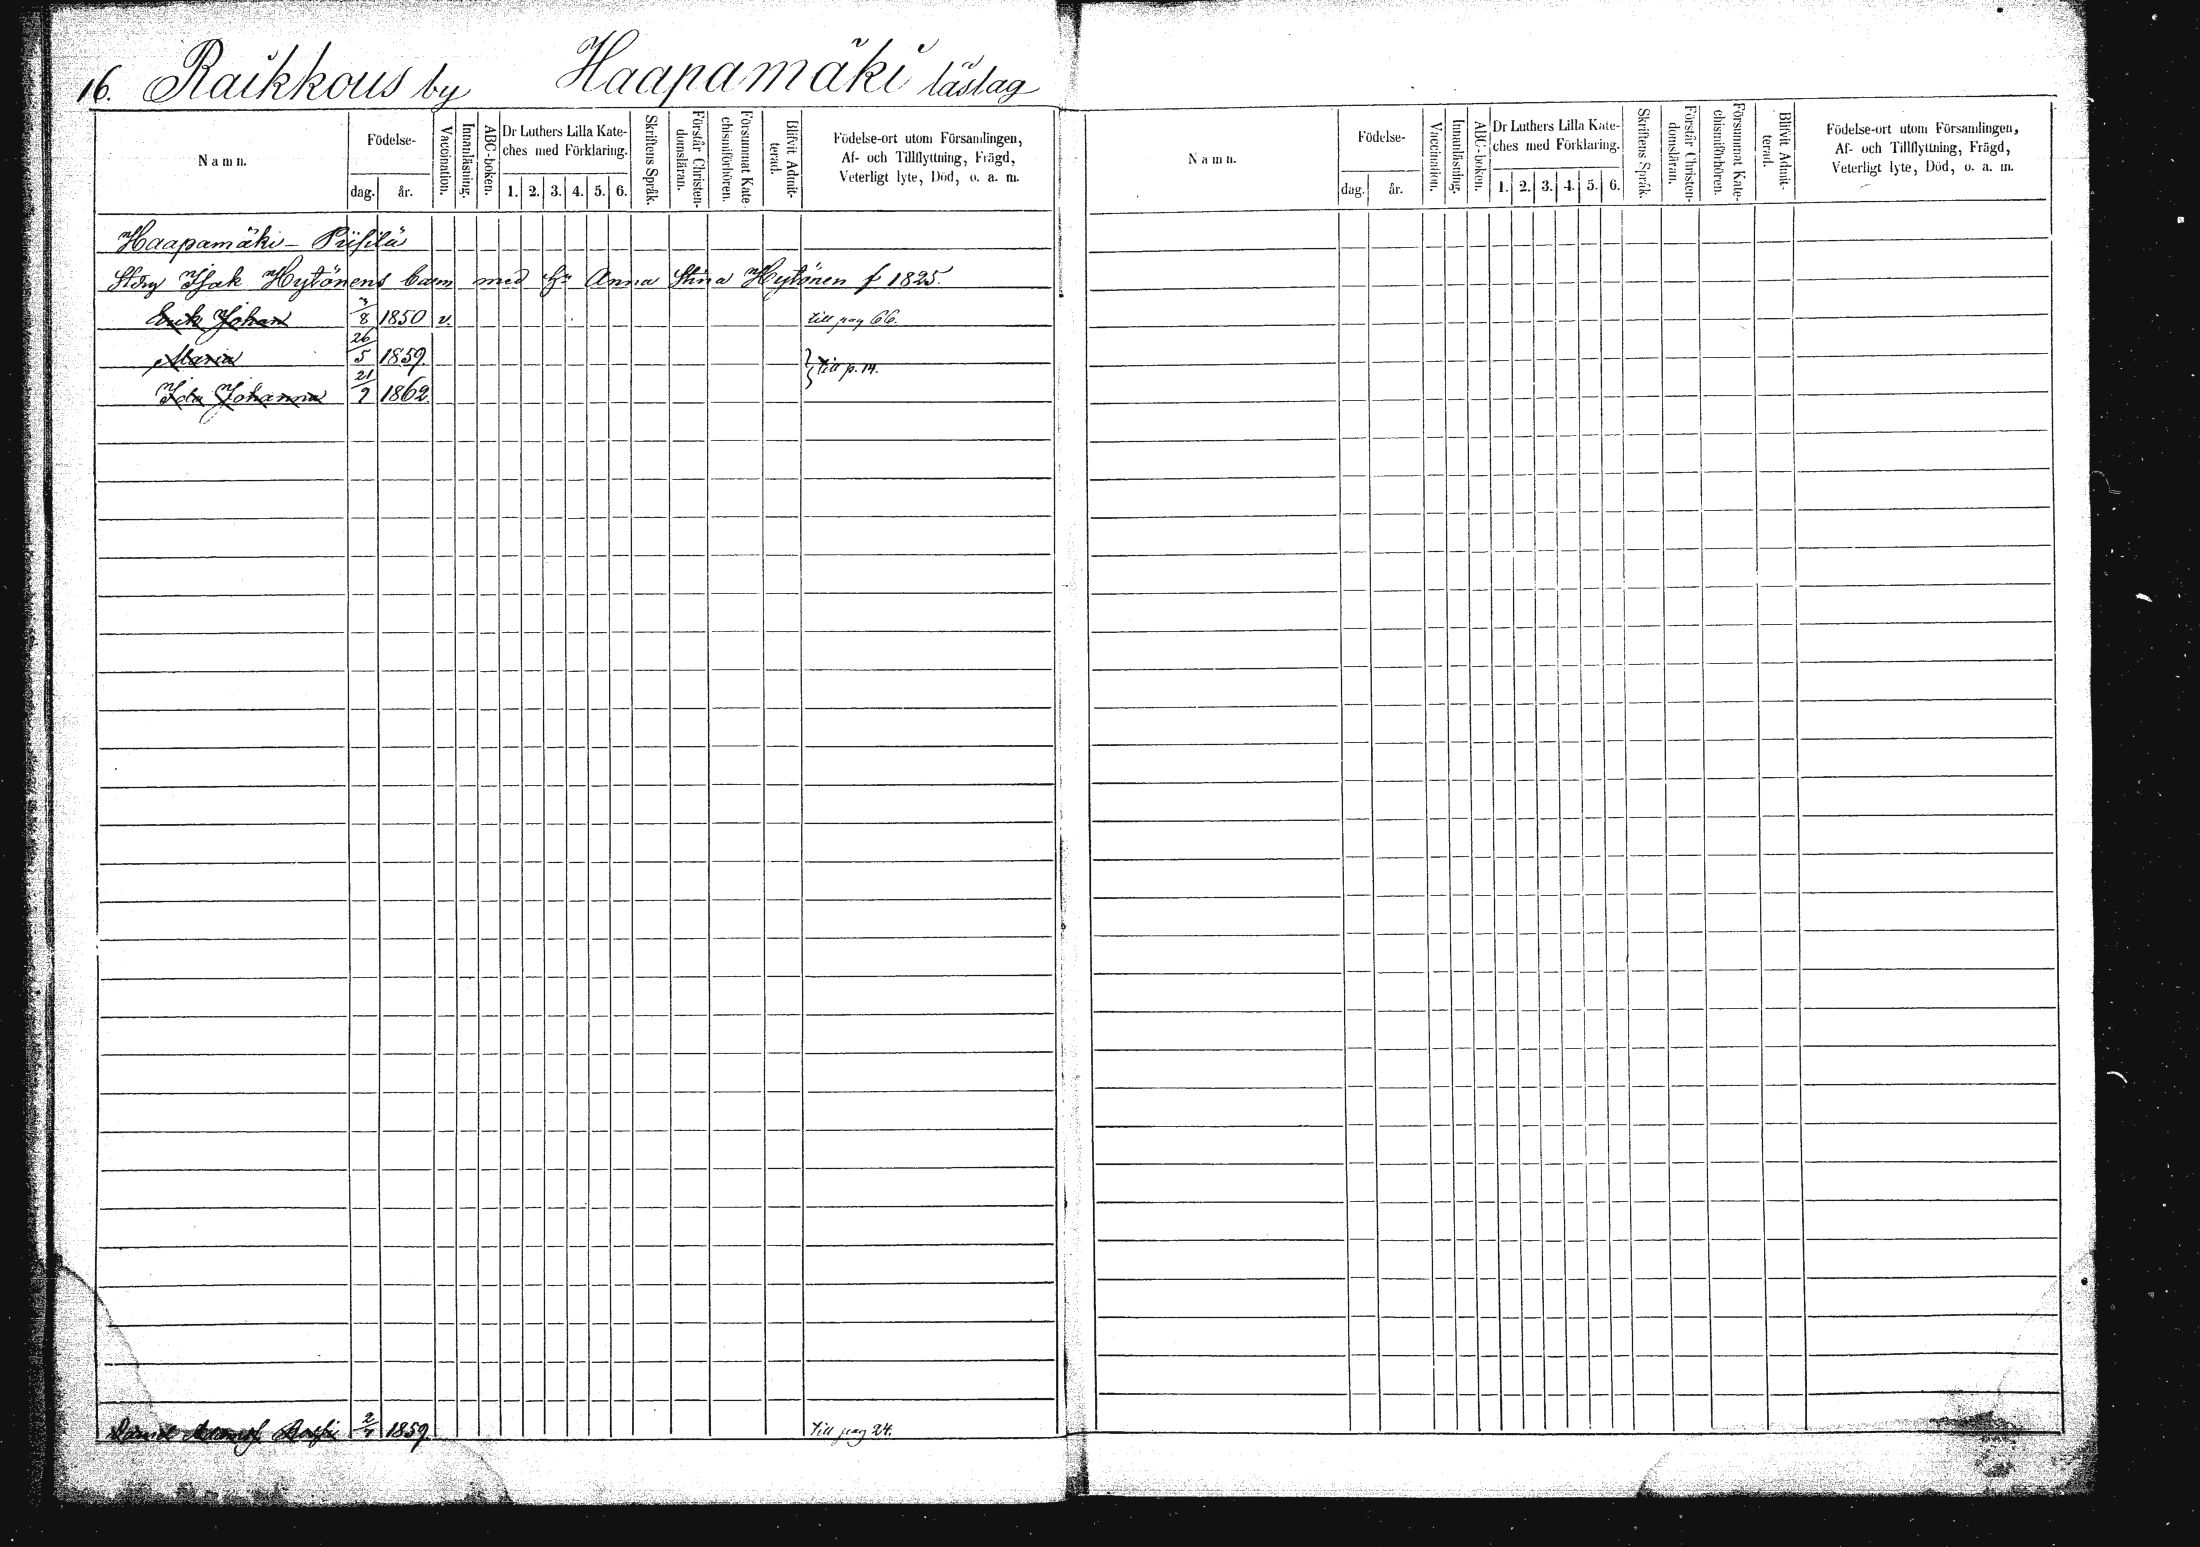 16. Raikkous by Haapamäki läslag
Namn.
Födelse-
dag. år.
Vaccination.
Innanläsning.
ABC-boken.
Dr Luthers Lilla Kate-
ches med Förklaring.
1. 2. 3. 4. 5. 6.
Skriftens Språk.
Förstår Christen-
domsläran.
Försummat Kate-
chismiförhören.
Blifvit Admit-
terad.
Födelse-ort utom Församlingen,
Af- och Tillflyttning, Frägd,
Veterligt lyte, Död, o. a. m.
Haapamäki - Piisilä
Isak Hytönens barn med Anna Stina Hytönen f 1825.
Erik Johan 7/8 1850 v. till pag 66.
Maria 26/5 1859.
till p. 14.
Ida Johanna 21/9 1862.
2/7 1859. till pag 24.
Namn.
Födelse-
dag. år.
Vaccination.
Innanläsning.
ABC-boken.
Dr Luthers Lilla Kate-
ches med Förklaring.
1. 2. 3. 4. 5. 6.
Skriftens Språk.
Förstår Christen-
domsläran.
Försummat Kate-
chismiförhören.
Blifvit Admit-
terad.
Födelse-ort utom Församlingen,
Af- och Tillflyttning, Frägd,
Veterligt lyte, Död, o. a. m.